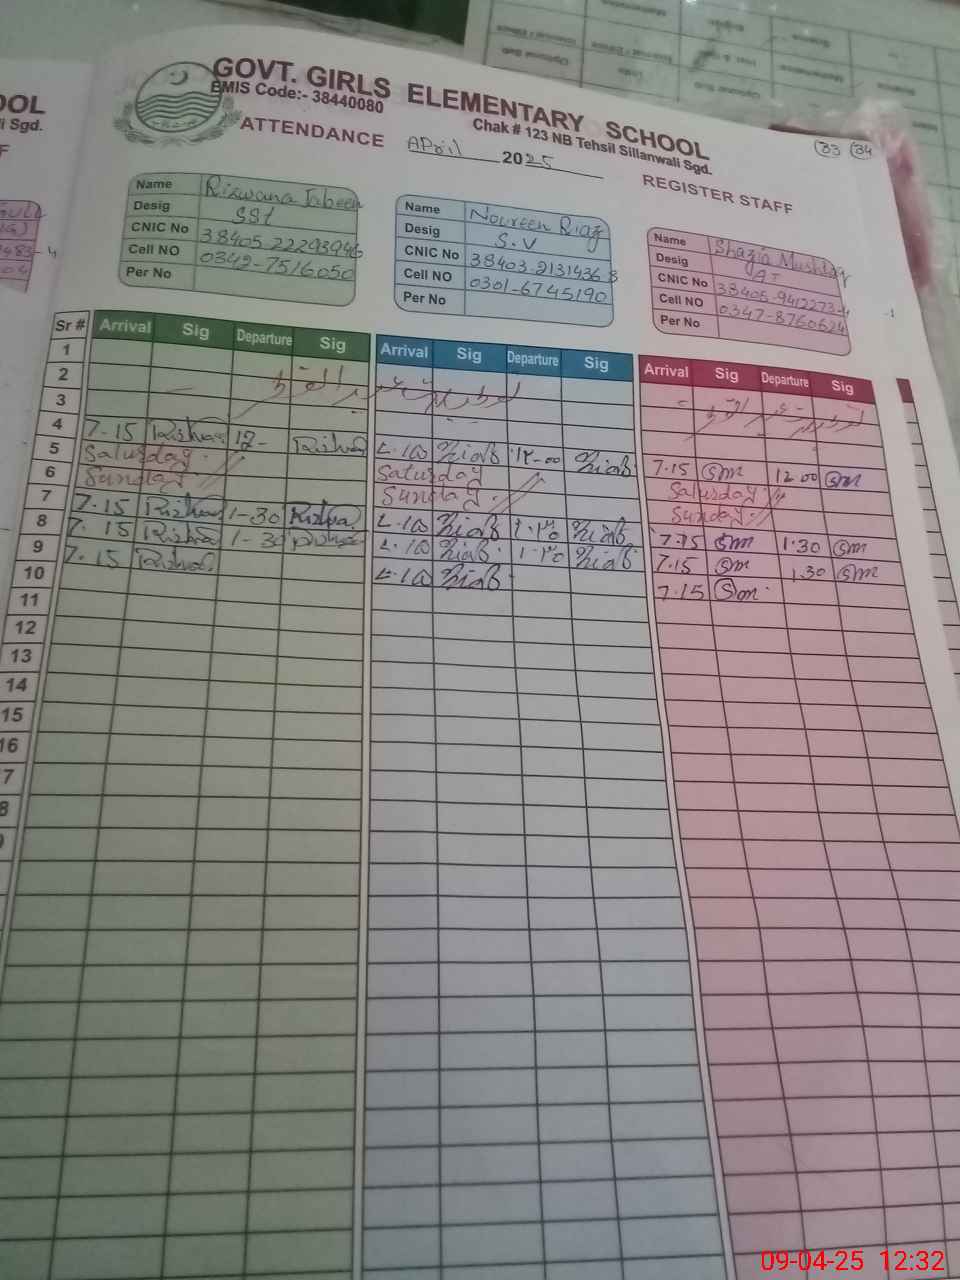 GOVT. GIRLS ELEMENTARY SCHOOL
EMIS Code:- 38440080
Chak # 123 NB Tehsil Sillanwali Sgd.
ATTENDANCE April 2025 REGISTER STAFF
33 34
OOL
i Sgd.
Name Rizwana Jabeen
Desig SSt
CNIC No 38405-22293946
Cell NO 0342-7516050
Per No
Name Noureen Riaz
Desig S.V
CNIC No 38403-2131436 8
Cell NO 0301-6745190
Per No
Name Shazia Mushtaq
Desig AT
CNIC No 38405-9412273-4
Cell NO 0347-8760624
Per No
Sr # Arrival Sig Departure Sig Arrival Sig Departure Sig Arrival Sig Departure Sig
1
2
3
4 7.15 12- ۷.۱۵ ۱۲-۰۰ 7.15 Sm 12 00 Sm
5 Saturday Saturday Saturday
6 Sunday Sunday Sunday
7 7.15 1-30 ۷.۱۵ ۱.۳۰ 7.15 Sm 1.30 Sm
8 7.15 1-30 ۷.۱۵ ۱.۳۰ 7.15 Sm 1.30 Sm
9 7.15 ۷.۱۵ 7.15 Sm
10
11
12
13
14
15
16
7
8
09-04-25 12:32